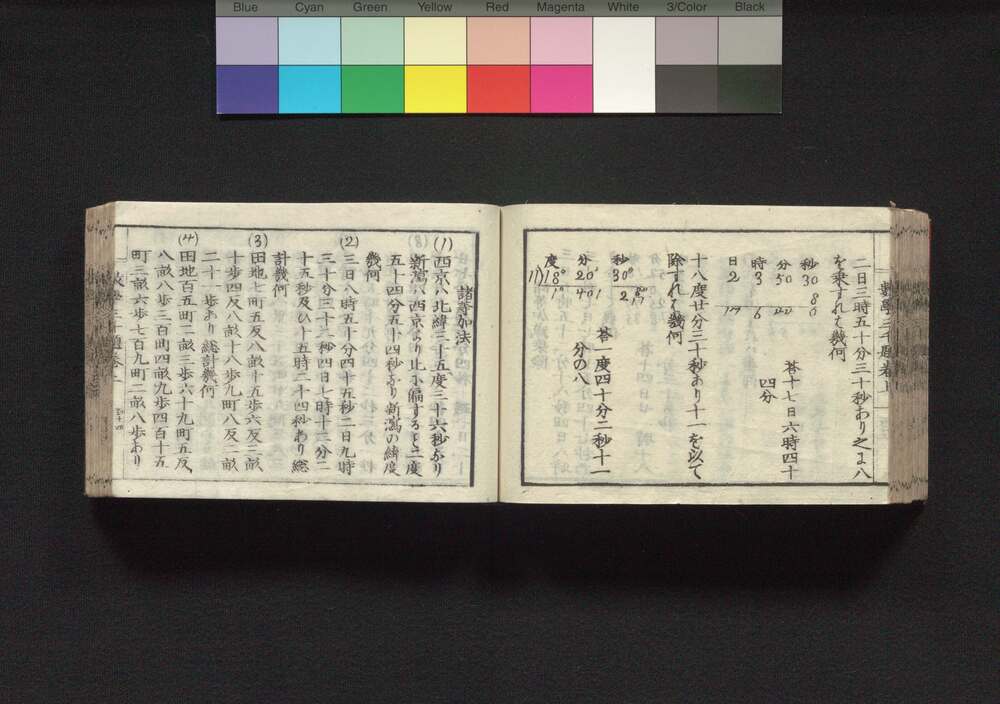 Blue Cyan Green Yellow Red Magenta White 3/Color Black
二日三時五十分三十秒あり之に八
を乗ずれば幾何
日 時 分 秒
2 3 50 30
8
17 6 44 0
答十七日六時四十
四分
十八度廿分三十秒あり十一を以て
除すれば幾何
度 分 秒
11)18° 20' 30"
1° 40' 2
答一度四十分二秒十一
分の八
諸等加法
(1) 西京ハ北緯三十五度三十六秒なり
新瀉ハ西京より北に偏すること二度
五十四分五十四秒なり新瀉の緯度
幾何
(2) 三日八時五十分四十五秒二日九時
三十分三十二秒四日七時十三分二
十五秒及ひ十五時二十四秒あり総
計幾何
(3) 田地七町五反八畝十五歩六反二畝
十歩四反八畝十八歩九町八反二畝
二十一歩あり総計幾何
(4) 田地百五町二畝三歩六十九町五反
八畝八歩三百町四畝九歩四百十五
町三畝六歩七百九町二畝八歩あり